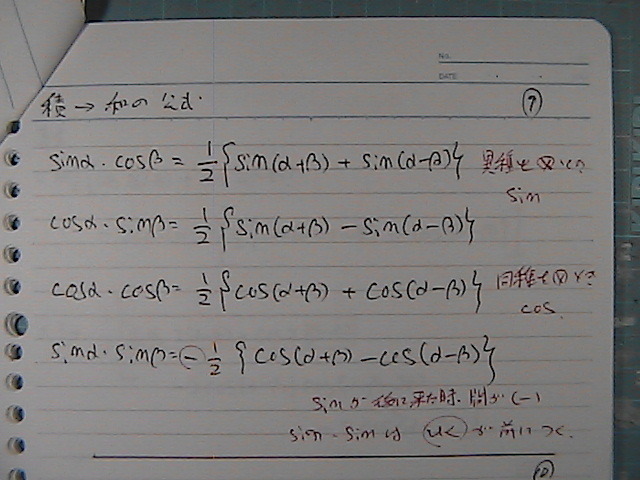 NO.
DATE
積→和の公式.
⑦
sinα・cosβ = 1/2{sin(α+β) + sin(α-β)} 異種を⊗と
sin
cosα・sinβ = 1/2{sin(α+β) - sin(α-β)}
cosα・cosβ = 1/2{cos(α+β) + cos(α-β)} 同種を⊗と
cos.
sinα・sinβ = - 1/2{cos(α+β) - cos(α-β)}
sinが後に来た時、間が(-)
sin・sinは が前につく.